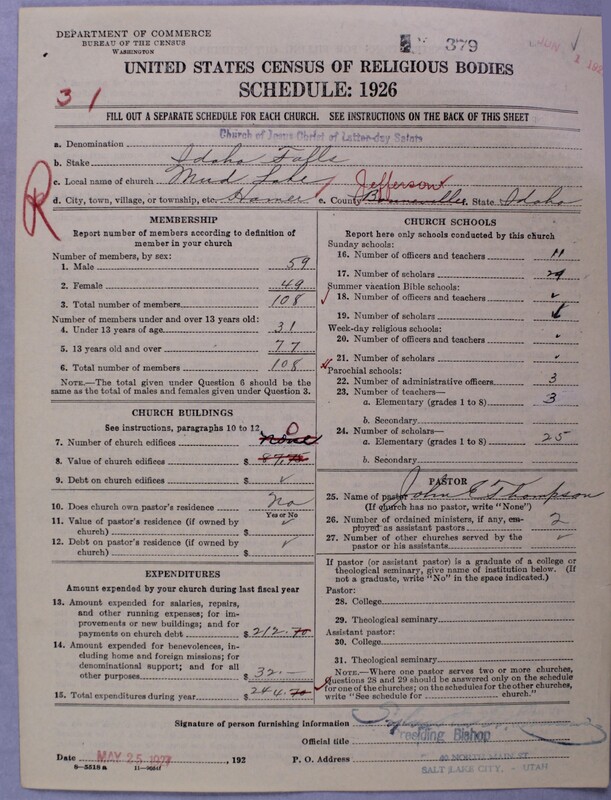 DEPARTMENT OF COMMERCE
BUREAU OF THE CENSUS
WASHINGTON
379
JUN 1 192
UNITED STATES CENSUS OF RELIGIOUS BODIES
SCHEDULE: 1926
31
FILL OUT A SEPARATE SCHEDULE FOR EACH CHURCH. SEE INSTRUCTIONS ON THE BACK OF THIS SHEET
Church of Jesus Christ of Latter-day Saints
a. Denomination
b. Stake Idaho Falls
c. Local name of church Mud Lake
Jefferson
d. City, town, village, or township, etc. Hamer e. County Bonneville f. State Idaho
R
MEMBERSHIP
Report number of members according to definition of
member in your church
Number of members, by sex:
1. Male 59
2. Female 49
3. Total number of members 108
Number of members under and over 13 years old:
4. Under 13 years of age 31
5. 13 years old and over 77
6. Total number of members 108
NOTE.—The total given under Question 6 should be
the same as the total of males and females given under Question 3.
CHURCH BUILDINGS
See instructions, paragraphs 10 to 12
0
7. Number of church edifices None
8. Value of church edifices $
9. Debt on church edifices $ ✓
10. Does church own pastor's residence? No
Yes or No
11. Value of pastor's residence (if owned by
church) $ ✓
12. Debt on pastor's residence (if owned by
church) $ ✓
EXPENDITURES
Amount expended by your church during last fiscal year
13. Amount expended for salaries, repairs,
and other running expenses; for im-
provements or new buildings; and for
payments on church debt $ 212.70
14. Amount expended for benevolences, in-
cluding home and foreign missions; for
denominational support; and for all
other purposes $ 32.—
15. Total expenditures during year $ 244.70
CHURCH SCHOOLS
Report here only schools conducted by this church
Sunday schools:
16. Number of officers and teachers 11
17. Number of scholars 29
Summer vacation Bible schools:
18. Number of officers and teachers ✓
19. Number of scholars
Week-day religious schools:
20. Number of officers and teachers
21. Number of scholars
Parochial schools:
22. Number of administrative officers 3
23. Number of teachers—
a. Elementary (grades 1 to 8) 3
b. Secondary
24. Number of scholars—
a. Elementary (grades 1 to 8) 25
b. Secondary
PASTOR
25. Name of pastor John E Thompson
(If church has no pastor, write "None")
26. Number of ordained ministers, if any, em-
ployed as assistant pastors 2
27. Number of other churches served by the
pastor or his assistants ✓
If pastor (or assistant pastor) is a graduate of a college or
theological seminary, give name of institution below. (If
not a graduate, write "No" in the space indicated.)
Pastor:
28. College
29. Theological seminary
Assistant pastor:
30. College
31. Theological seminary
NOTE.—Where one pastor serves two or more churches,
Questions 28 and 29 should be answered only on the schedule
for one of the churches; on the schedules for the other churches,
write "See schedule for ........ church."
Signature of person furnishing information
Official title Presiding Bishop
Date MAY 25 1927, 192 P. O. Address 40 NORTH MAIN ST.
SALT LAKE CITY, - UTAH
8—5518 a